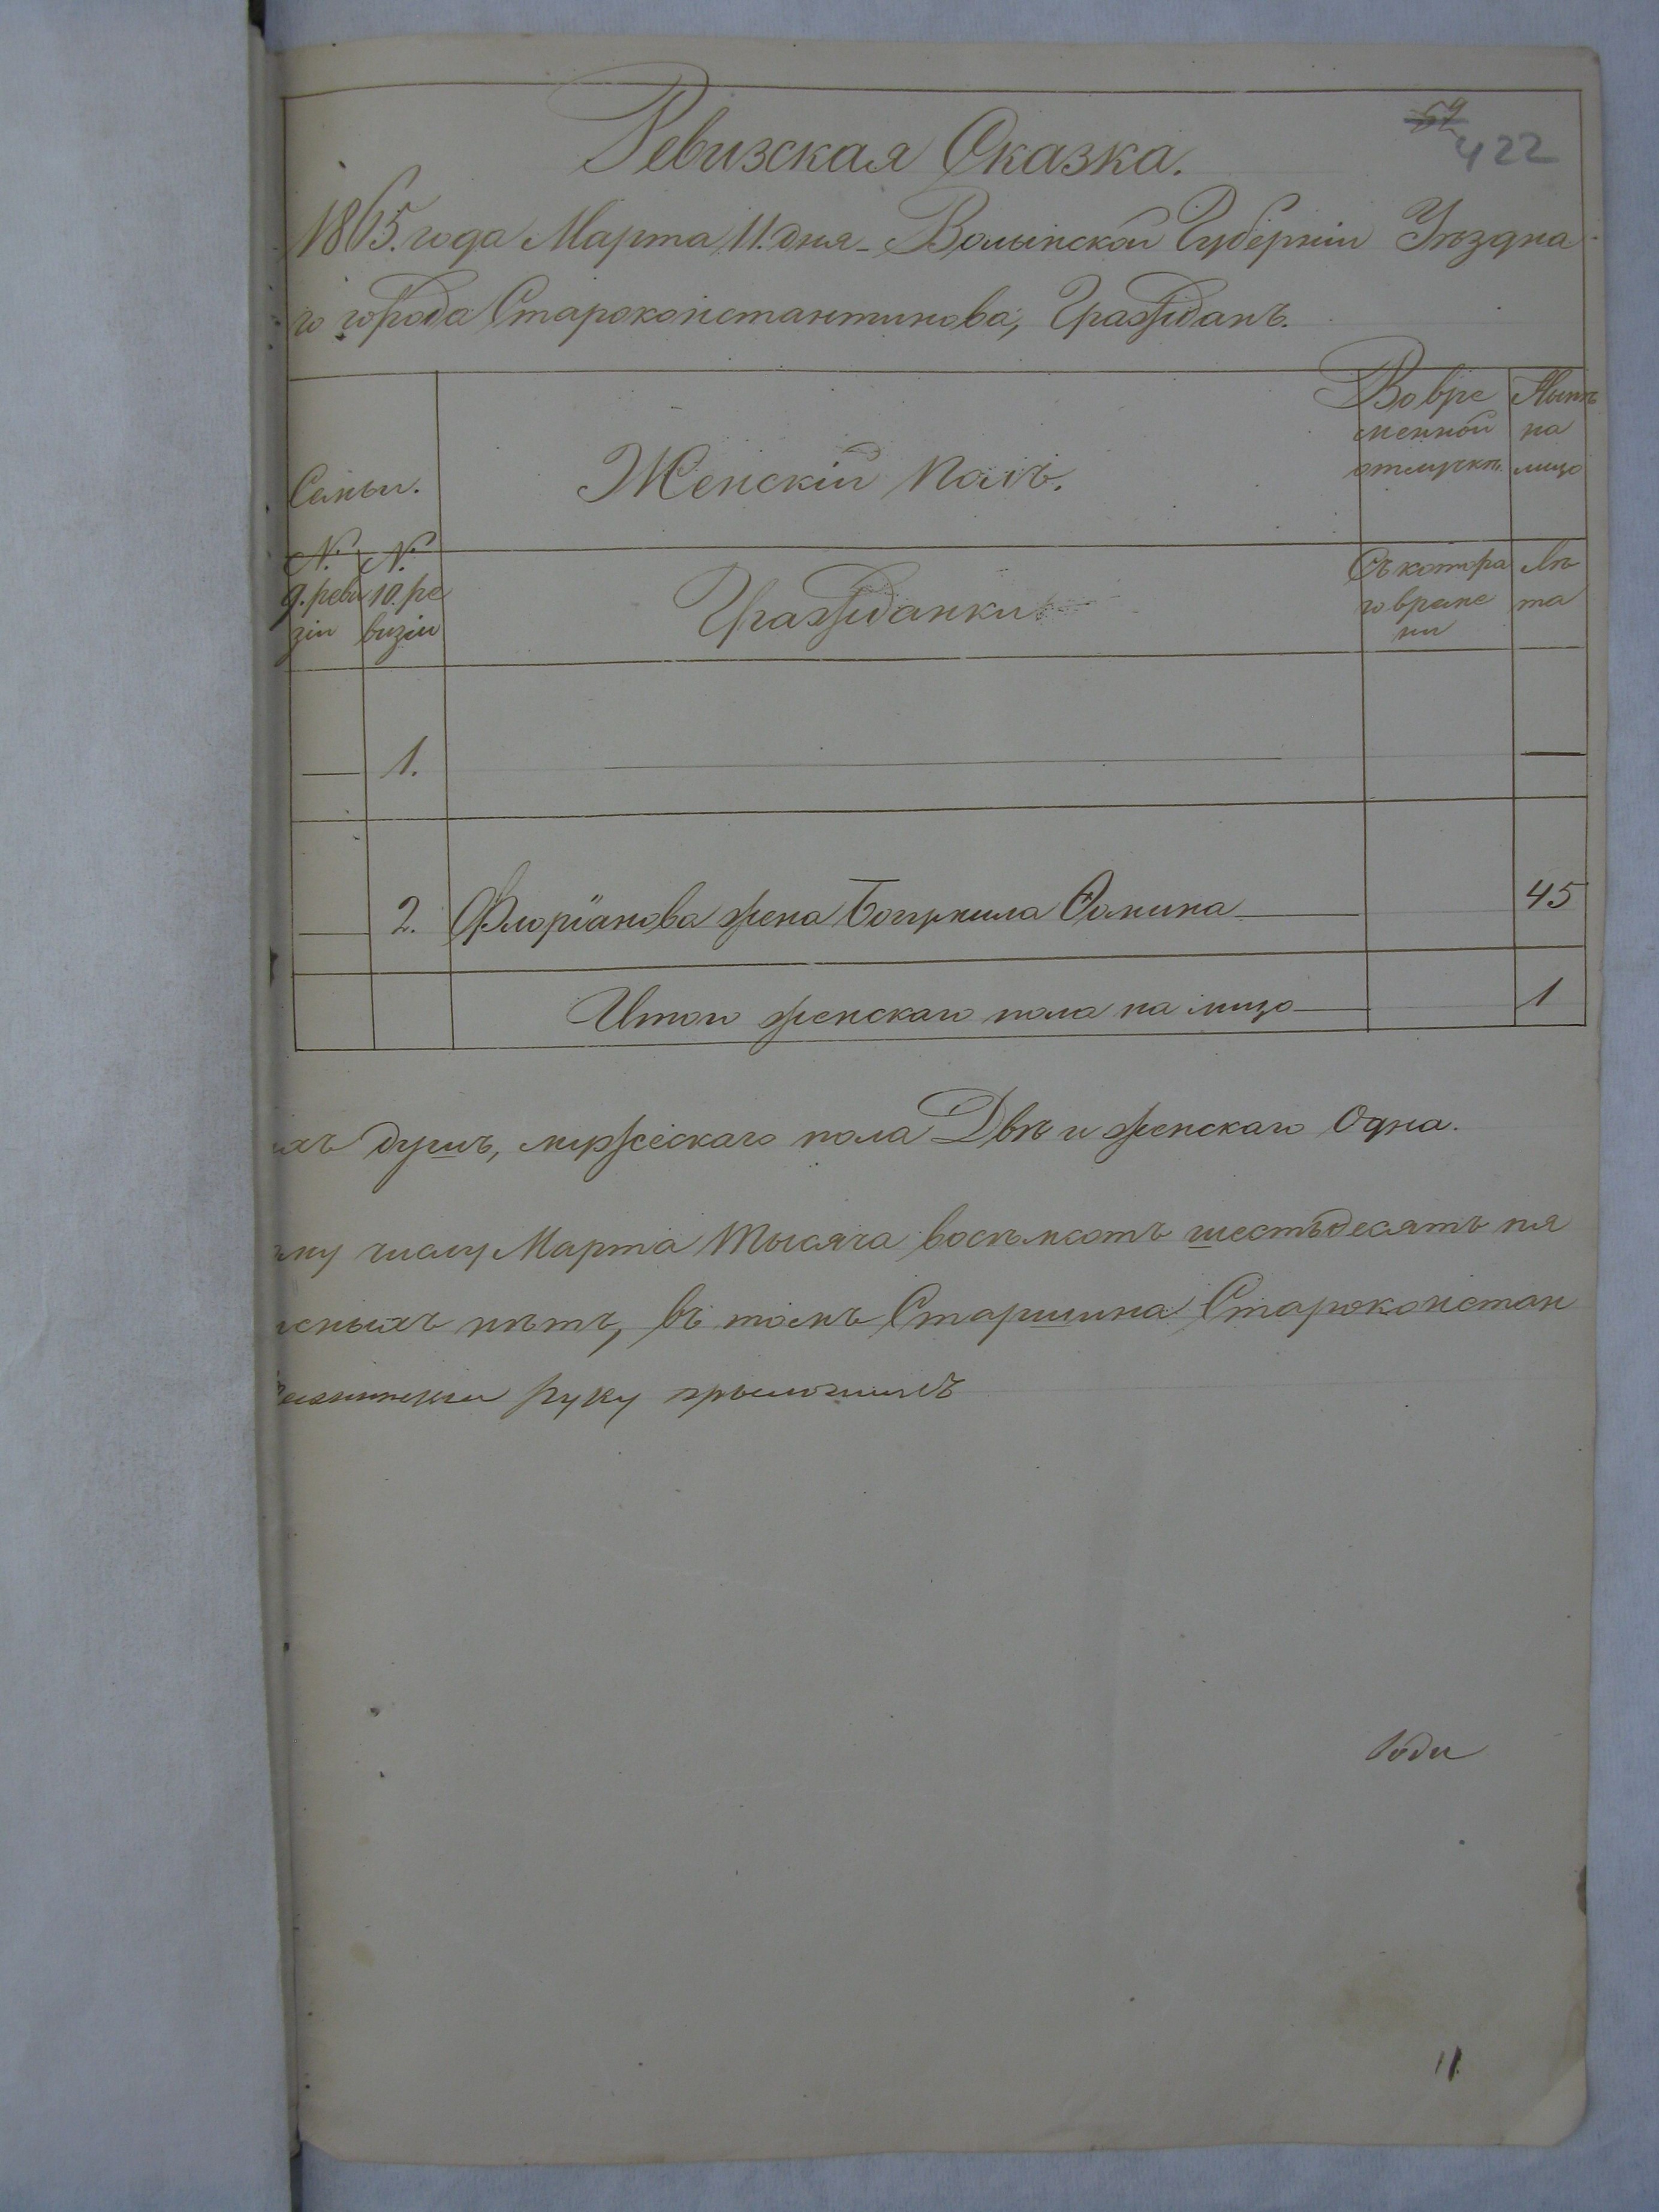 59
422
Ревизская Сказка.
1865. года Марта 11. дня - Волынской Губерніи Уѣздна
го города Староконстантинова, Гражданъ.
Семьи.
Женскій полъ.
Во вре
менной
отлучкѣ.
Нынѣ
на
лицо
N.
9. реви
зіи
N.
10. ре
визіи
Гражданки
Съ котора
го време
ни
Лѣ
та
1.
2. Флоріанова жена Богумила Ѳомина 45
Итого женскаго пола на лицо 1
ихъ душъ, мужескаго пола Двѣ и женскаго Одна.
му числу Марта Тысяча восемьсотъ шестьдесятъ пя
исныхъ нѣтъ, въ томъ Старшина Староконстан
руку приложилъ
11.